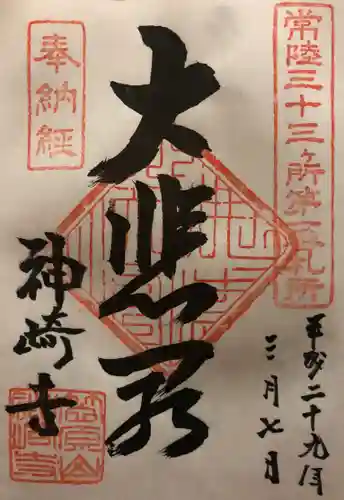 常陸三十三ヶ所第一番札所
奉納経
大悲
平成二十九年
三月七日
神崎寺